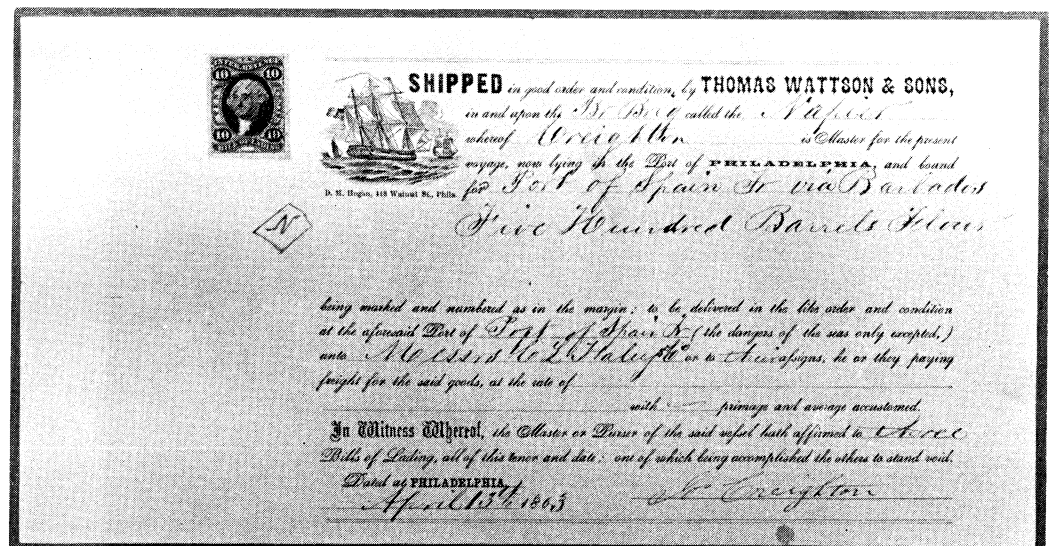 10 10
10 10
SHIPPED in good order and condition, by THOMAS WATTSON & SONS,
in and upon the Br Brig called the Napier
whereof Creighton is Master for the present
voyage, now lying in the Port of PHILADELPHIA, and bound
D. M. Hogan, 118 Walnut St., Phila.
for Port of Spain Tr via Barbados
N
Five Hundred Barrels Flour
being marked and numbered as in the margin; to be delivered in the like order and condition
at the aforesaid Port of Port of Spain Tr (the dangers of the seas only excepted,)
unto Messrs & Co or to their assigns, he or they paying
freight for the said goods, at the rate of
with — primage and average accustomed.
In Witness Whereof, the Master or Purser of the said vessel hath affirmed to three
Bills of Lading, all of this tenor and date; one of which being accomplished the others to stand void.
Dated at PHILADELPHIA,
April 13th 1863 Creighton